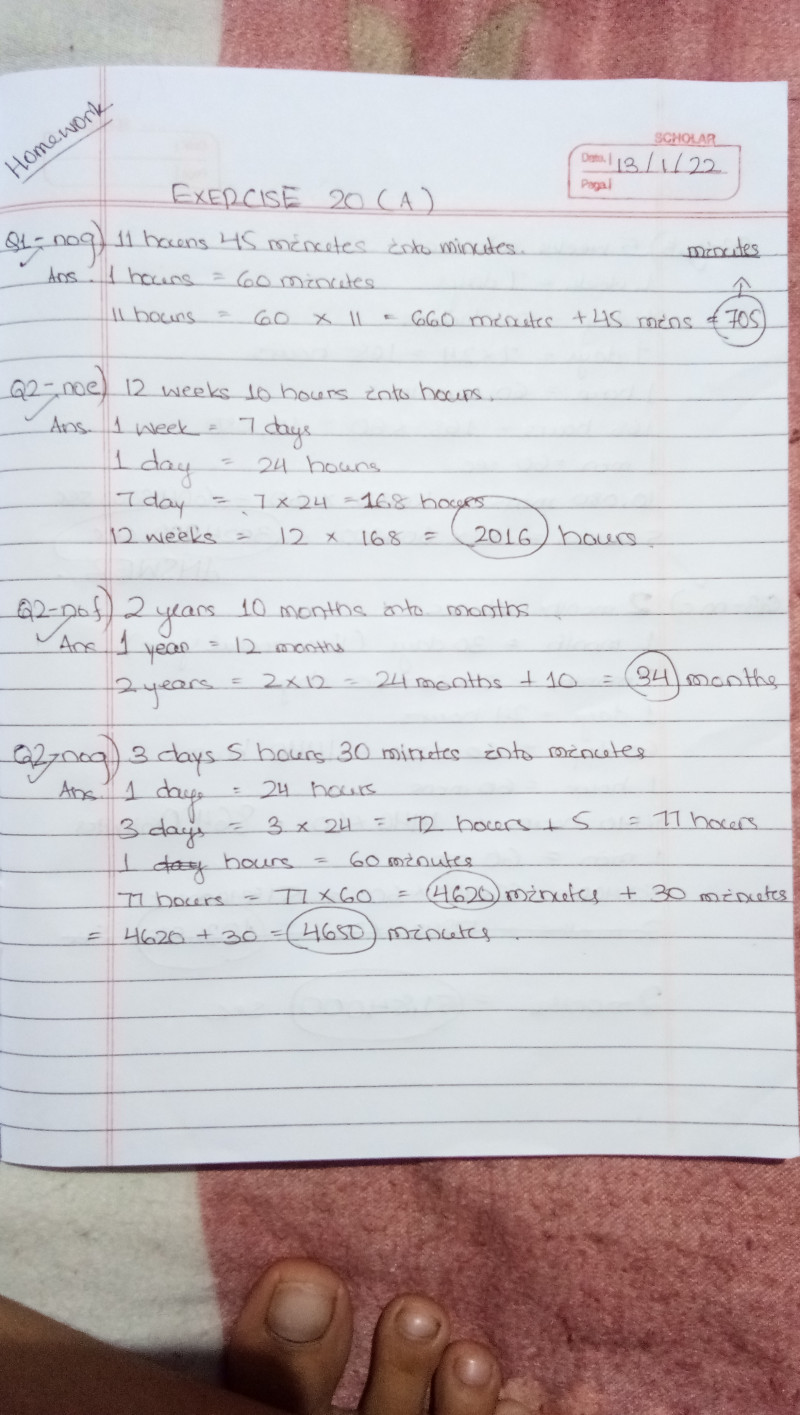 Homework
SCHOLAR
Date. 13/1/22
Page.
EXERCISE 20 (A)
Q1-nog) 11 hours 45 minutes into minutes.
minutes
Ans. 1 hours = 60 minutes
11 hours = 60 × 11 = 660 minutes + 45 mins = 705
Q2-noe) 12 weeks 10 hours into hours.
Ans. 1 week = 7 days
1 day = 24 hours
7 day = 7 × 24 = 168 hours
12 weeks = 12 × 168 = 2016 hours.
Q2-nof) 2 years 10 months into months.
Ans 1 year = 12 months
2 years = 2 × 12 = 24 months + 10 = 34 months
Q2-nog) 3 days 5 hours 30 minutes into minutes
Ans. 1 days = 24 hours
3 days = 3 × 24 = 72 hours + 5 = 77 hours
1 day hours = 60 minutes
77 hours = 77 × 60 = 4620 minutes + 30 minutes
= 4620 + 30 = 4650 minutes.